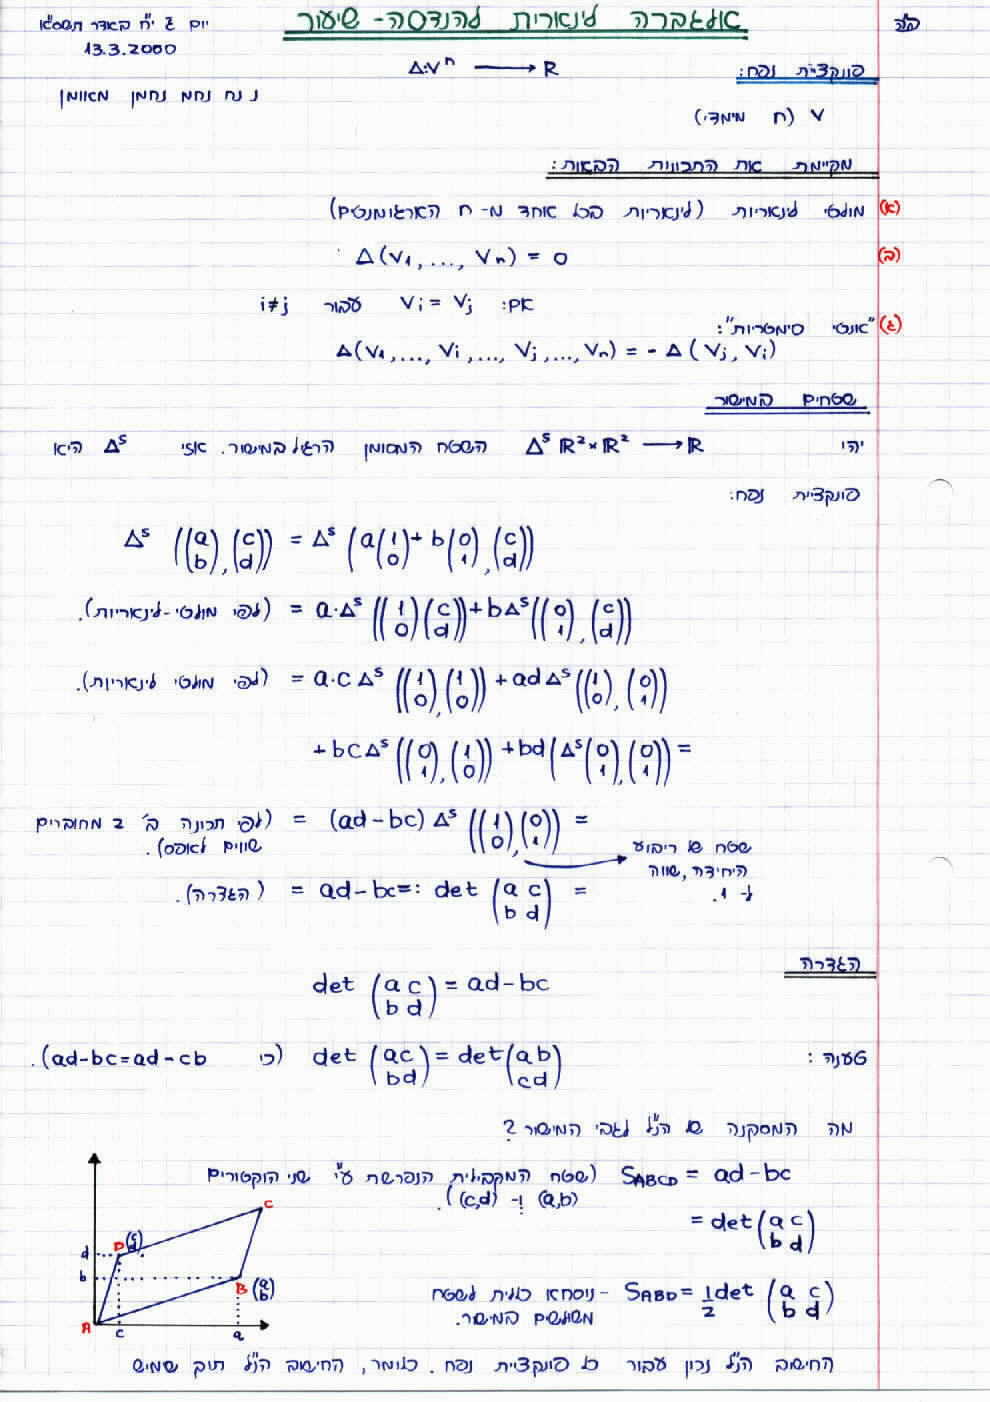 ב"ה
אלגברה לינארית להנדסה- שיעור
יום ג י"ח באדר תשס"א
13.3.2000
נ נח נחמ נחמן מאומן
פונקציית נפח: Δ:Vⁿ ⟶ R
V (n מימדי)
מקיימת את התכונות הבאות:
(א) מולטי לינאריות (לינאריות בכל אחד מ- n הארגומנטים)
(ב) Δ(V₁,..., Vₙ) = 0
אם: Vᵢ = Vⱼ עבור i≠j
(ג) "אנטי סימטריות":
Δ(V₁,..., Vᵢ,..., Vⱼ,..., Vₙ) = - Δ(Vⱼ, Vᵢ)
שטחים במישור
יהי Δˢ ℝ²×ℝ² ⟶ ℝ השטח המסומן הרגיל במישור. אזי Δˢ היא
פונקציית נפח:
Δˢ ((a b), (c d)) = Δˢ (a(1 0) + b(0 1), (c d))
= a·Δˢ ((1 0)(c d)) + bΔˢ((0 1), (c d)) (לפי מולטי-לינאריות).
= a·c Δˢ ((1 0), (1 0)) + ad Δˢ ((1 0), (0 1)) (לפי מולטי לינאריות).
+ bcΔˢ ((0 1), (1 0)) + bd(Δˢ(0 1), (0 1)) =
= (ad-bc) Δˢ ((1 0), (0 1)) = (לפי תכונה ב' 2 מחוברים
שווים לאפס).
שטח של ריבוע
היחידה, שווה
ל- 1.
= ad-bc=: det (a c b d) = (הגדרה).
הגדרה
det (a c b d) = ad-bc
טענה: det (a c b d) = det (a b c d) (כי ad-bc=ad-cb).
מה המסקנה של הנ"ל לגבי המישור?
S_ABCD = ad-bc (שטח המקבילית הנפרשת ע"י שני הוקטורים
(a,b) ו- (c,d)).
= det (a c b d)
S_ABD = 1/2 det (a c b d) - נוסחא כללית לשטח
משולשים במישור.
C
D (c d)
d
b
B (a b)
A
c
a
החישוב הנ"ל נכון עבור כל פונקציית נפח. כלומר, החישוב הנ"ל תוך שמיש